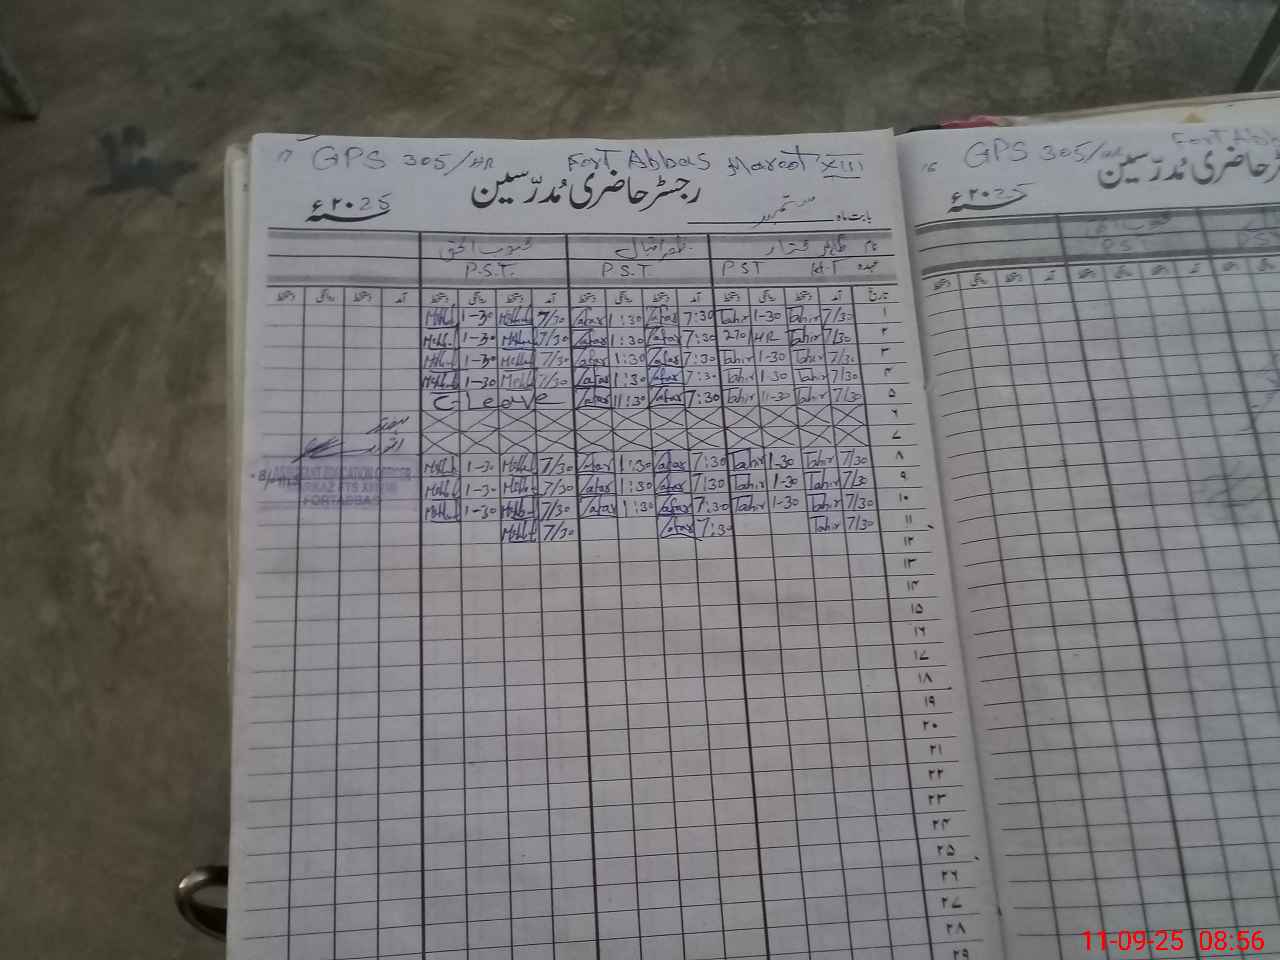 17 GPS 305/HR Fort Abbas Maroot XIII
رجسٹر حاضری مُدرّسین
بابت ماہ ستمبر
۲۰25ء
نام طاہر مختار ظفر اقبال محبوب الحق
عہدہ PST H.T P.S.T P.S.T.
تاریخ آمد دستخط روانگی دستخط آمد دستخط روانگی دستخط آمد دستخط روانگی دستخط آمد دستخط روانگی دستخط
۱ 7/30 Tahir 1-30 Tahir 7:30 Zafar 1:30 Zafar 7/30 1-30
۲ 7/30 Tahir 270/HR 7:30 Zafar 1:30 Zafar 7/30 1-30
۳ 7/30 Tahir 1-30 Tahir 7:30 Zafar 1:30 Zafar 7/30 1-30
۴ 7/30 Tahir 1-30 Tahir 7:30 Zafar 1:30 Zafar 7/30 1-30
۵ 7/30 Tahir 11-30 Tahir 7:30 Zafar 11:30 Zafar C-Leave
۶ ہفتہ
۷ اتوار
۸ 7/30 Tahir 1-30 Tahir 7:30 Zafar 1:30 Zafar 7/30 1-30
۹ 7/30 Tahir 1-30 Tahir 7:30 Zafar 1:30 Zafar 7/30 1-30
۱۰ 7/30 Tahir 1-30 Tahir 7:30 Zafar 1:30 Zafar 7/30 1-30
۱۱ 7/30 Tahir 7:30 Zafar 7/30
ASSISTANT EDUCATION OFFICER
MARKAZ
FORTABBAS
۱۲
۱۳
۱۴
۱۵
۱۶
۱۷
۱۸
۱۹
۲۰
۲۱
۲۲
۲۳
۲۴
۲۵
۲۶
۲۷
۲۸
۲۹
GPS 305/HR Fort Abb
رجسٹر حاضری مُدرّسین
۲۰25ء
PST
11-09-25 08:56